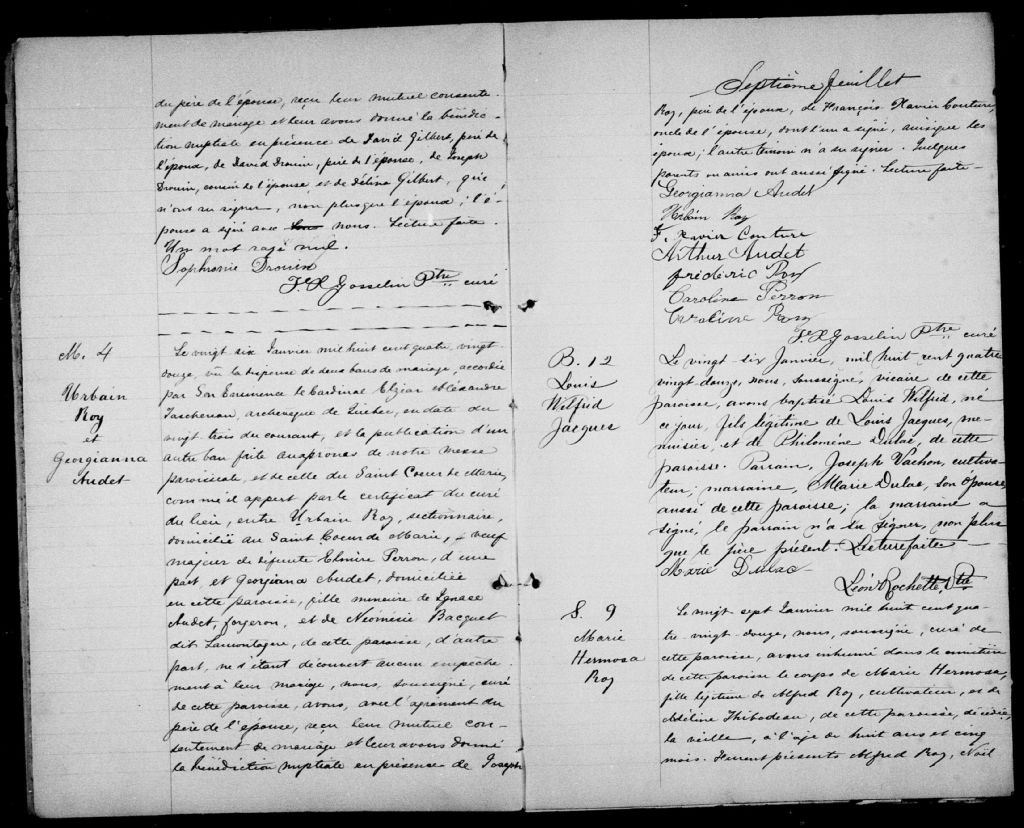 du père de l'épouse, reçu leur mutuel consente-
ment de mariage et leur avons donné la bénédic-
tion nuptiale en présence de David Gilbert, père de
l'époux, de David Drouin, père de l'épouse, de Joseph
Drouin, cousin de l'épouse et de Délina Gilbert, qui
n'ont su signer, non plus que l'époux; l'é-
pouse a signé avec nous. Lecture faite.
Un mot rayé nul.
Sophronie Drouin
Gosselin Ptre curé
M. 4
Urbain
Roy
et
Georgianna
Audet
Le vingt six Janvier mil huit cent quatre vingt-
douze, vu la dispense de deux bans de mariage, accordée
par Son Eminence le Cardinal Elzéar Alexandre
Taschereau, archevêque de Québec, en date du
vingt trois du courant, et la publication d'un
autre ban faite au prône de notre messe
paroissiale, et de celle du Saint Coeur de Marie,
comme il appert par le certificat du curé
du lieu, entre Urbain Roy, sectionnaire,
domicilié au Saint Coeur de Marie, veuf
majeur de défunte Elmire Perron, d'une
part, et Georgiana Audet, domiciliée
en cette paroisse, fille mineure de Ignace
Audet, forgeron, et de Néomisie Bacquet
dit Lamontagne, de cette paroisse, d'autre
part, ne s'étant découvert aucun empêche-
ment à leur mariage, nous, soussigné, curé
de cette paroisse, avons, avec l'agrément du
père de l'épouse, reçu leur mutuel con-
sentement de mariage et leur avons donné
la bénédiction nuptiale en présence de Joseph
Septième feuillet
Roy, père de l'époux, de François Xavier Couture,
oncle de l'épouse, dont l'un a signé, ainsi que les
époux; l'autre témoin n'a su signer. Quelques
parents ou amis ont aussi signé. Lecture faite-
Georgianna Audet
Urbain Roy
F. Xavier Couture
Arthur Audet
frédéric Roy
Caroline Perron
Caroline Roy
Gosselin Ptre curé
B. 12
Louis
Wilfrid
Jacques
Le vingt six Janvier, mil huit cent quatre
vingt-douze, nous, soussigné, vicaire de cette
paroisse, avons baptisé Louis Wilfrid, né
ce jour, fils légitime de Louis Jacques, me-
nuisier, et de Philomène Dulac, de cette
paroisse. Parrain, Joseph Vachon, cultiva-
teur; marraine, Marie Dulac, son épouse,
aussi de cette paroisse; la marraine a
signé, le parrain n'a su signer, non plus
que le père présent. Lecture faite-
Marie Dulac
Léon Rochette, Ptre
S. 9
Marie
Hermosa
Roy
Le vingt sept Janvier mil huit cent qua-
tre-vingt-douze, nous, soussigné, curé de
cette paroisse, avons inhumé dans le cimetière
de cette paroisse le corps de Marie Hermosa,
fille légitime de Alfred Roy, cultivateur, et de
Adéline Thibodeau, de cette paroisse, décédée
la veille, à l'âge de huit ans et cinq
mois. Furent présents Alfred Roy, Noël